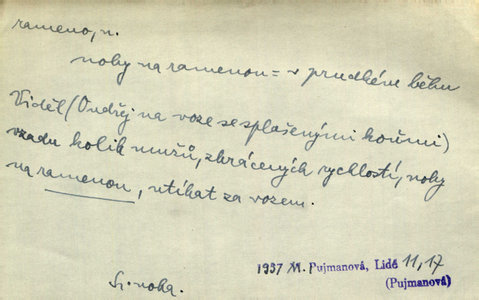 rameno, n.
nohy na ramenou = v prudkém běhu
Viděl (Ondřej na voze se splašenými koňmi)
vzadu kolik mužů, zkrácených rychlostí, nohy
na ramenou, utíkat za vozem.
1937 M. Pujmanová, Lidé 11, 17
(Pujmanová)
Sr. noha.